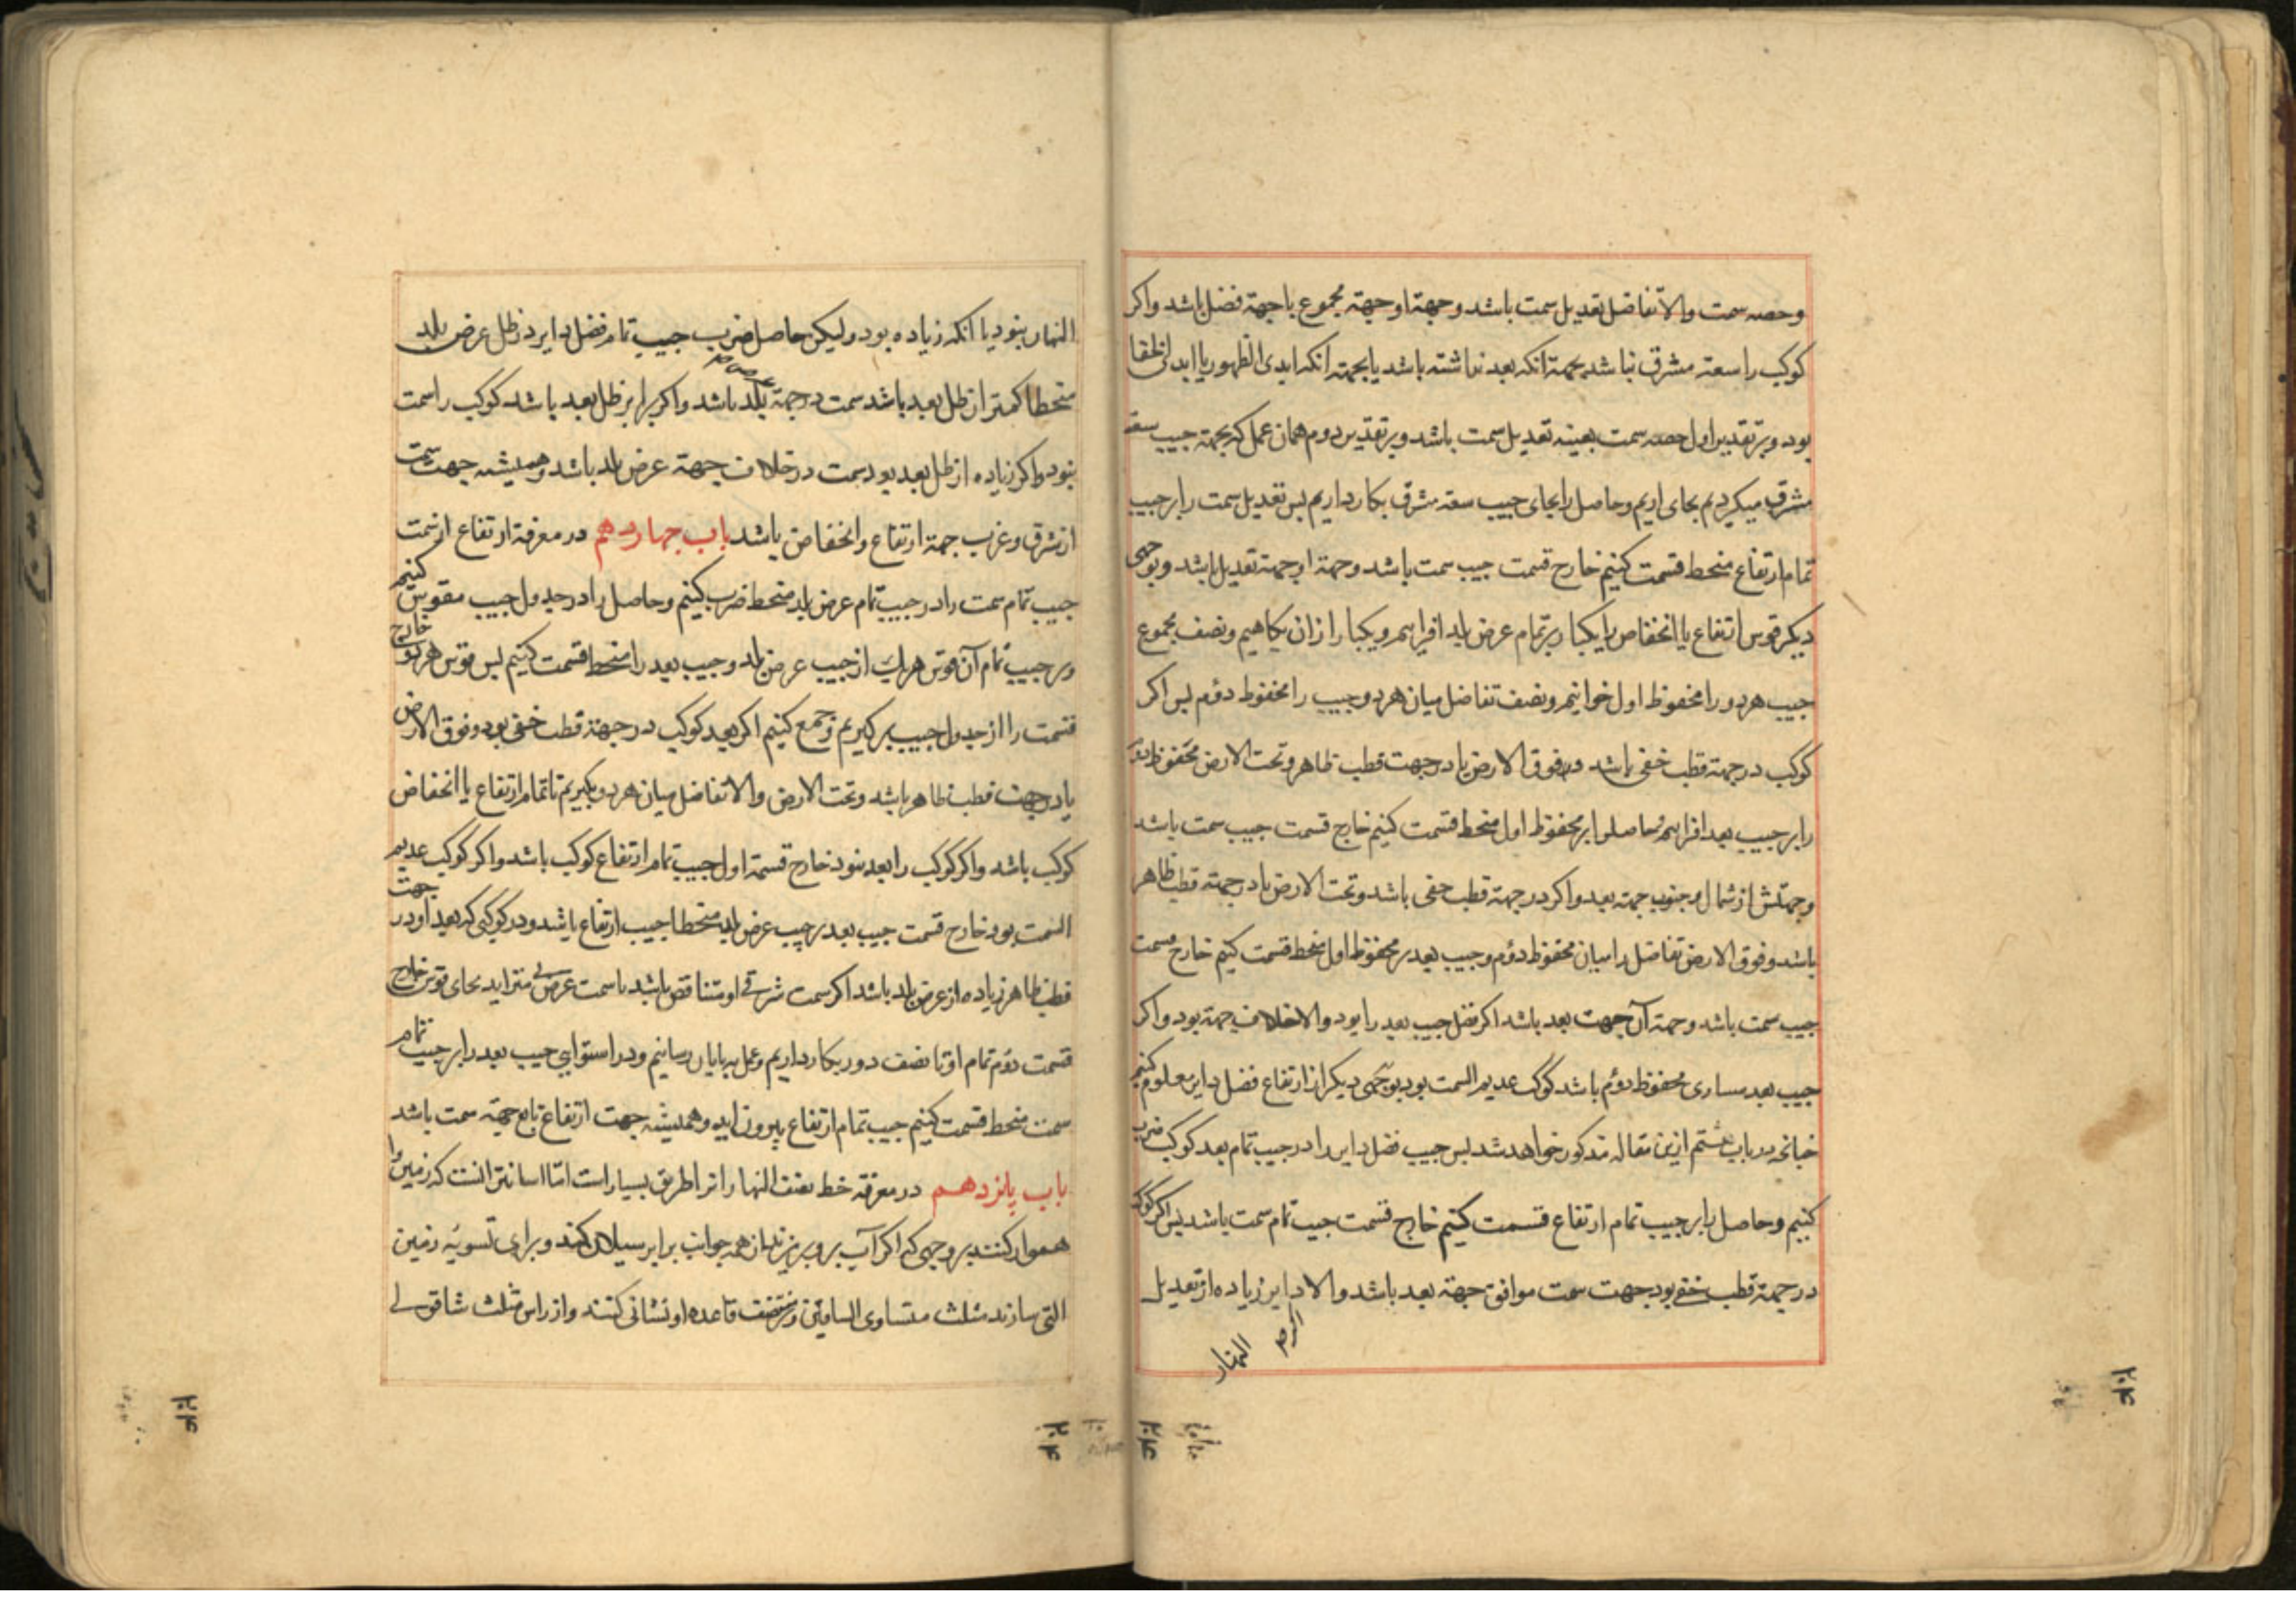 وحصه سمت والا تفاضل تعدیل سمت باشد وجهة او جهة مجموع یا جهة فضل باشد واکر
کوکب را سعة مشرق نباشد بجهة انکه بعد نداشته باشد یا بجهة انکه ابدی الظهور یا ابدی الخفا
بود و بر تقدیر اول حصه سمت بعینه تعدیل سمت باشد و بر تقدیر دوم همان عمل که بجهة جیب سعة
مشرق میکردیم بجای اریم وحاصل را بجای جیب سعة مشرق بکار داریم بس تعدیل سمت را بر جیب
تمام ارتفاع منحط قسمت کنیم خارج قسمت جیب سمت باشد وجهة او جهة تعدیل باشد وبوجهی
دیکر قوس ارتفاع یا انخفاض را یکبار بر تمام عرض بلد افزاییم ویکبار از ان بکاهیم ونصف مجموع
جیب هر دو را محفوظ اول خوانیم ونصف تفاضل میان هر دو جیب را محفوظ دوم بس اکر
کوکب در جهة قطب خفی باشد وفوق الارض یا در جهت قطب ظاهر وتحت الارض محفوظ دوم
را بر جیب بعد افزاییم وحاصل را بر محفوظ اول منحط قسمت کنیم خارج قسمت جیب سمت باشد
وجهتش از شمال وجنوب جهة بعد واکر در جهة قطب خفی باشد وتحت الارض یا در جهة قطب ظاهر
باشد وفوق الارض تفاضل را میان محفوظ دوم وجیب بعد بر محفوظ اول منحط قسمت کنیم خارج قسمت
جیب سمت باشد وجهة آن جهت بعد باشد اکر فضل جیب بعد را بود والا خلاف جهة بود واکر
جیب بعد مساوی محفوظ دوم باشد کوکب عدیم السمت بود بوجهی دیکر از ارتفاع فضل دایر معلوم کنیم
چنانچه در باب هشتم ازین مقاله مذکور خواهد شد بس جیب فضل دایر را در جیب تمام بعد کوکب ضرب
کنیم وحاصل را بر جیب تمام ارتفاع قسمت کنیم خارج قسمت جیب تمام سمت باشد بس اکر کوکب
در جهة قطب خفی بود جهت سمت موافق جهة بعد باشد والا دایر زیاده از تعدیل
اکر
النهار
النهار بنود یا انکه زیاده بود ولیکن حاصل ضرب جیب تمام فضل دایر در ظل عرض بلد
منحطا کمتر از ظل بعد باشد سمت در جهة عرض بلد باشد واکر برابر ظل بعد باشد کوکب را سمت
بنود واکر زیاده از ظل بعد بود سمت در خلاف جهة عرض بلد باشد وهمیشه جهت سمت
از شرق وغرب جهة ارتفاع وانخفاض باشد باب چهاردهم در معرفة ارتفاع از سمت
جیب تمام سمت را در جیب تمام عرض بلد منحط ضرب کنیم وحاصل را در جدول جیب مقوس کنیم
وبر جیب تمام آن قوس هر یک از جیب عرض بلد وجیب بعد را منحط قسمت کنیم بس قوس هر دو خارج
قسمت را از جدول جیب بر کیریم وجمع کنیم اکر بعد کوکب در جهة قطب خفی بود وفوق الارض
یا در جهت قطب ظاهر باشد وتحت الارض والا تفاضل میان هر دو بکیریم تا تمام ارتفاع یا انخفاض
کوکب باشد واکر کوکب را بعد بنود خارج قسمة اول جیب تمام ارتفاع کوکب باشد واکر کوکب عدیم
السمت بود خارج قسمت جیب بعد بر جیب عرض بلد منحطا جیب ارتفاع باشد ودر کوکبی که بعد او در جهت
قطب ظاهر زیاده از عرض بلد باشد اکر سمت شرقی او متناقص باشد یا سمت غربی متزاید بجای قوس خارج
قسمت دوم تمام او تا نصف دور بکار داریم وعمل بپایان رسانیم ودر استوایی جیب بعد را بر جیب تمام
سمت منحط قسمت کنیم جیب تمام ارتفاع بیرون اید وهمیشه جهت ارتفاع تابع جهة سمت باشد
باب پانزدهم در معرفة خط نصف النهار وانرا طریق بسیار است امّا اسانتر انست که زمین را
هموار کنند بر وجهی که اکر آب برو بریزند از همه جوانب برابر سیلان کند وبرای تسویه زمین
التی سازند مثلث متساوی الساقین وبر منتصف قاعده او نشانی کنند واز راس مثلث شاقولی